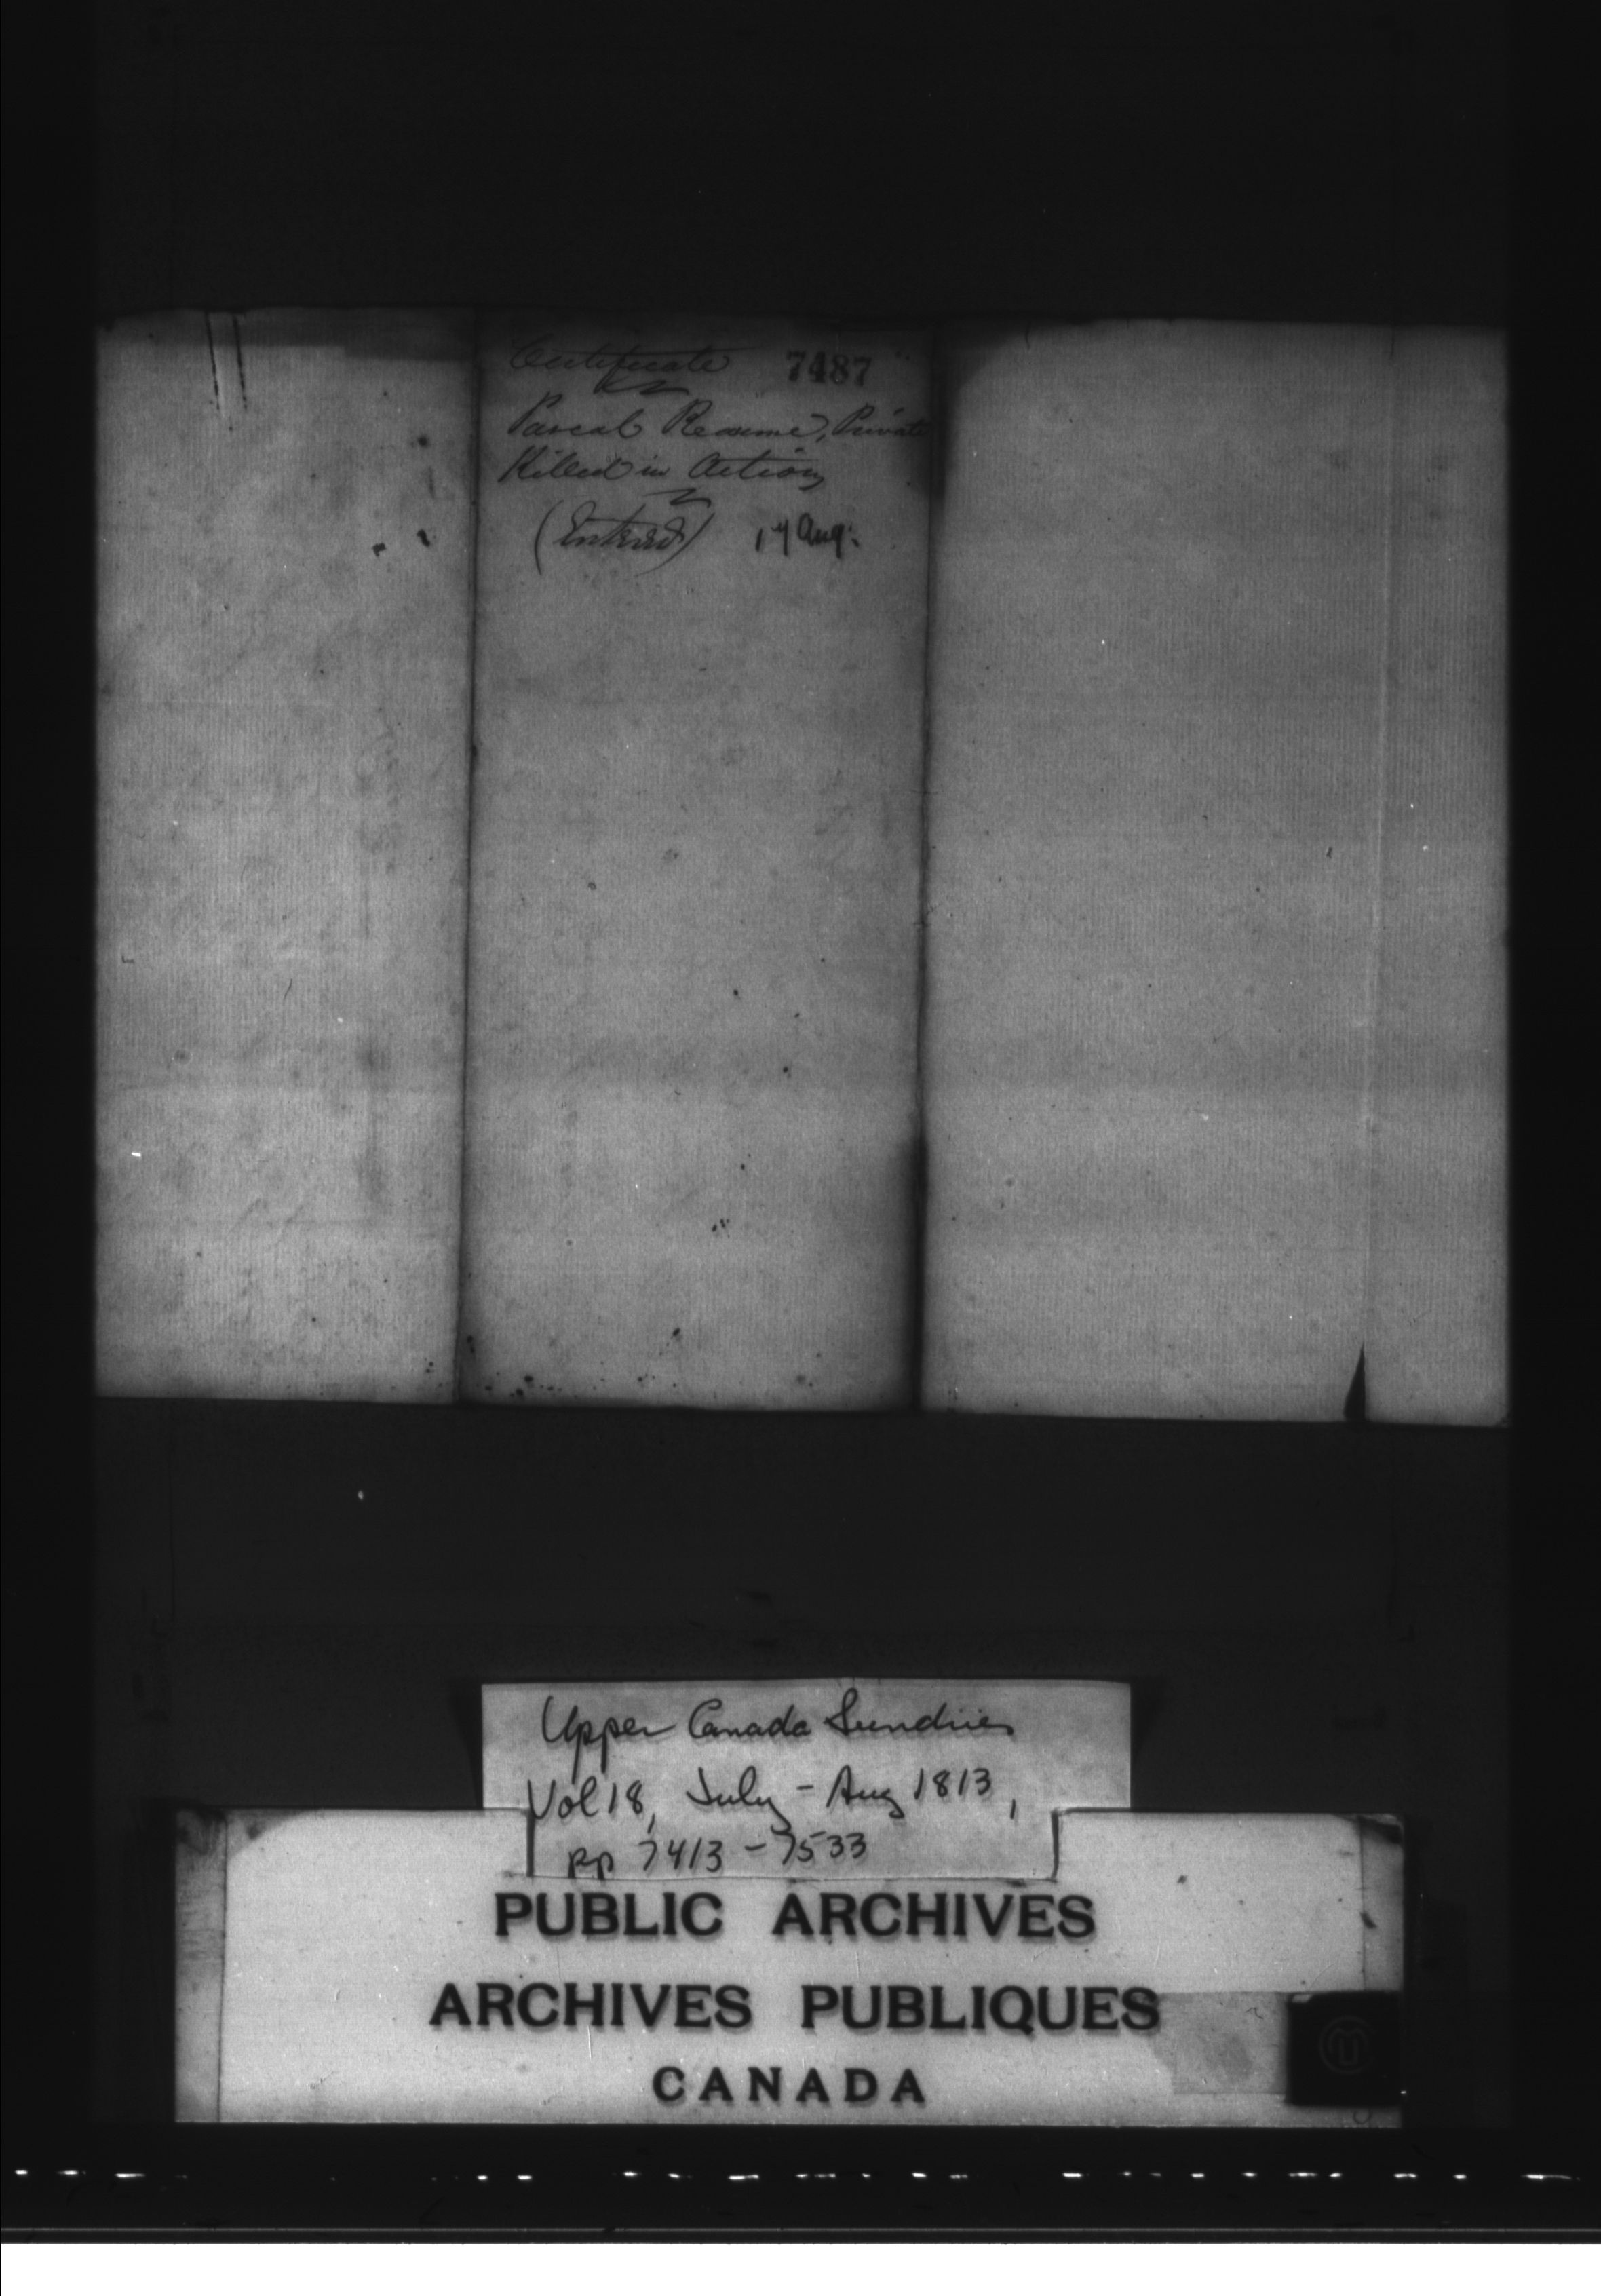 Certificate 7487
Pascal Reaume, Private
Killed in Action
(Entered) 17 Aug:
Upper Canada Sundries
Vol 18, July - Aug 1813,
pp 7413 - 7533
PUBLIC ARCHIVES
ARCHIVES PUBLIQUES
CANADA